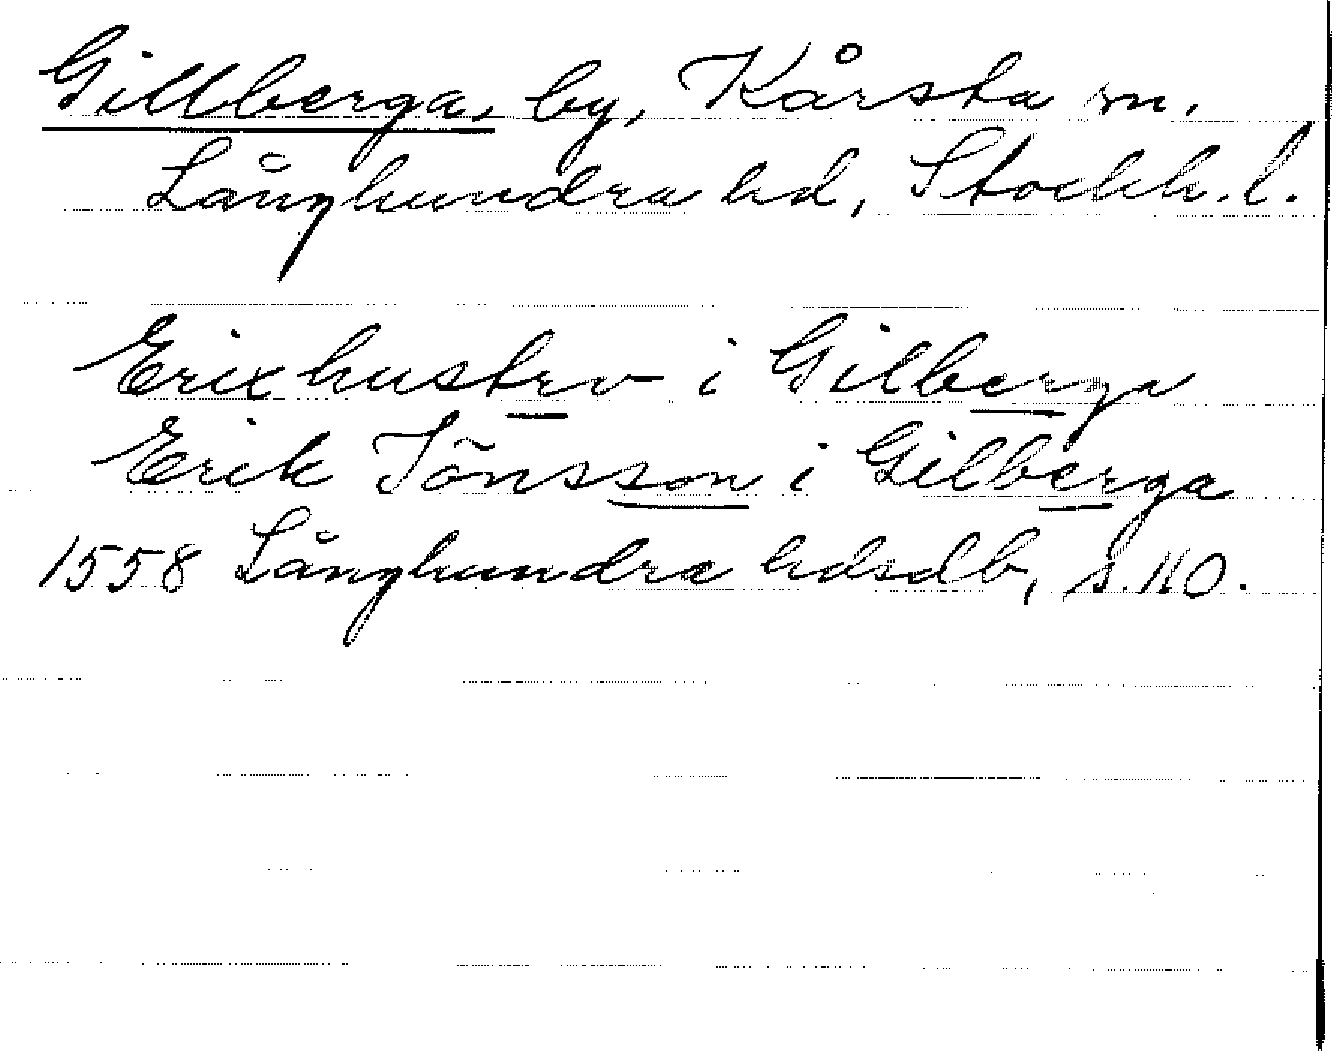 Gillberga, by, Kårsta sn.
Långhundra hd, Stockh. l.
Erix hustrv i Gilberga
Erik Jönsson i Gilberga
1558 Långhundra hdsdb, s. 110.